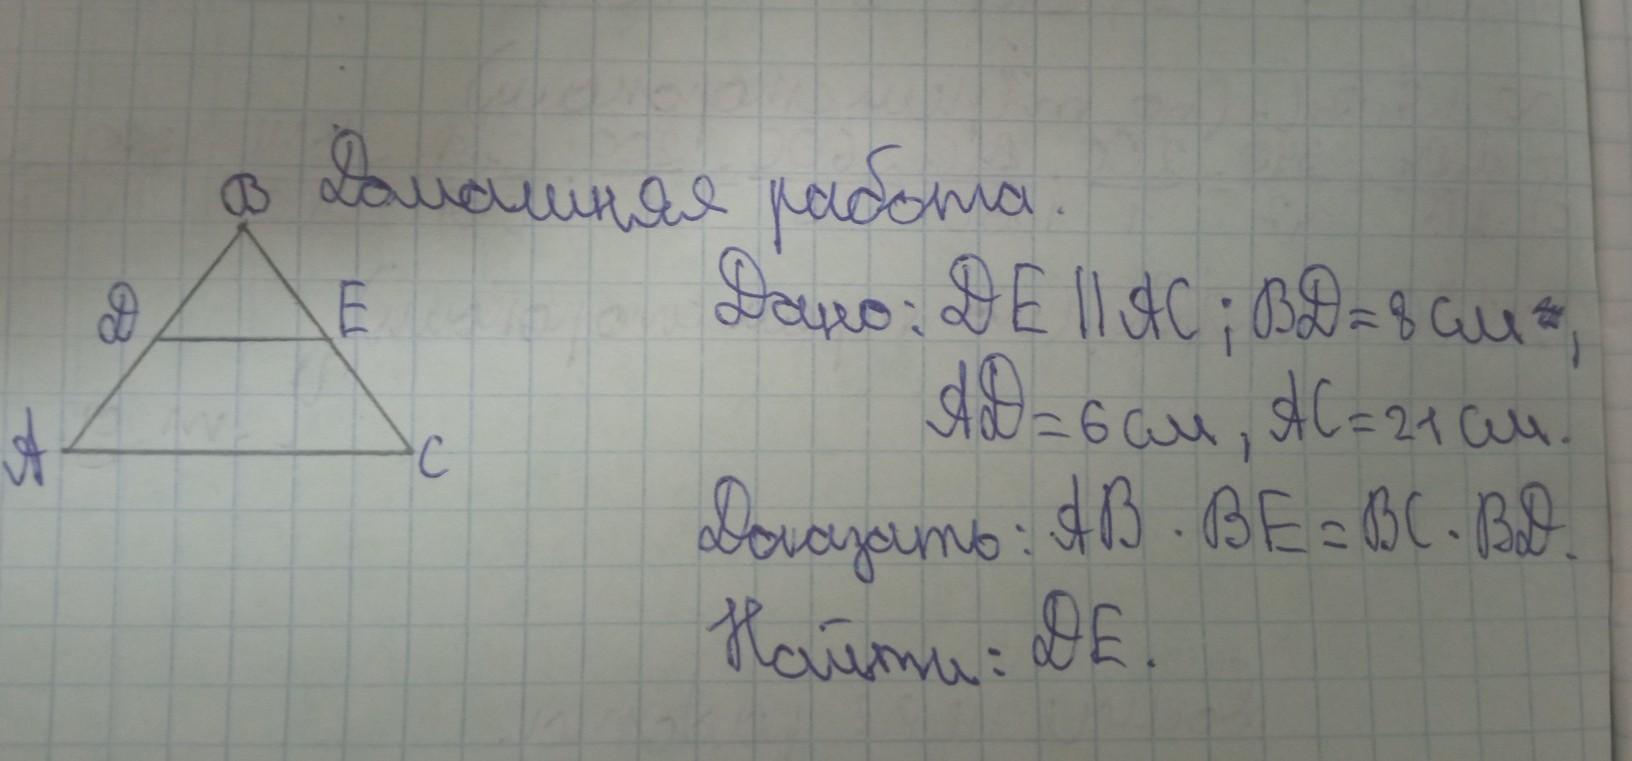 Домашняя работа.
B
D
E
A
C
Дано: DE || AC; BD = 8 см,
AD = 6 см, AC = 21 см.
Доказать: AB · BE = BC · BD.
Найти: DE.